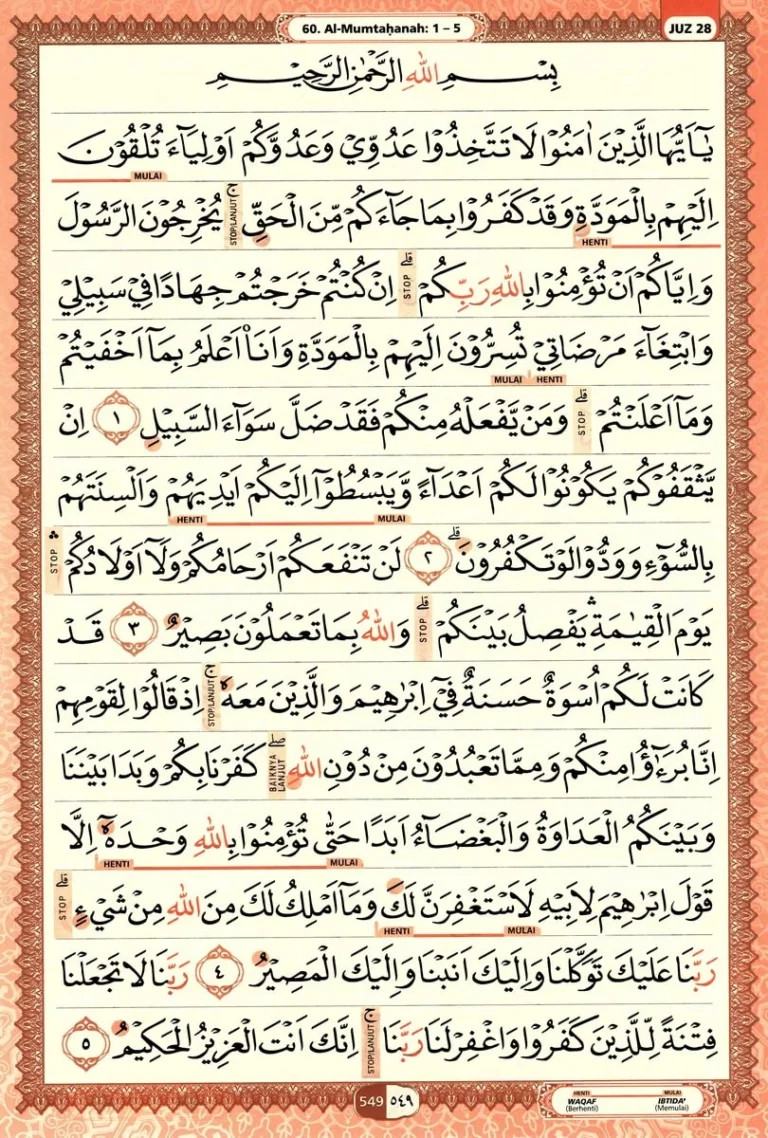 60. Al-Mumtaḥanah: 1 – 5
JUZ 28
بِسْمِ اللّٰهِ الرَّحْمٰنِ الرَّحِيْمِ
يٰٓاَيُّهَا الَّذِيْنَ اٰمَنُوْا لَا تَتَّخِذُوْا عَدُوِّيْ وَعَدُوَّكُمْ اَوْلِيَاۤءَ تُلْقُوْنَ
MULAI
اِلَيْهِمْ بِالْمَوَدَّةِ وَقَدْ كَفَرُوْا بِمَا جَاۤءَكُمْ مِّنَ الْحَقِّۚ يُخْرِجُوْنَ الرَّسُوْلَ
STOP/LANJUT
HENTI
وَاِيَّاكُمْ اَنْ تُؤْمِنُوْا بِاللّٰهِ رَبِّكُمْۗ اِنْ كُنْتُمْ خَرَجْتُمْ جِهَادًا فِيْ سَبِيْلِيْ
STOP
وَابْتِغَاۤءَ مَرْضَاتِيْ تُسِرُّوْنَ اِلَيْهِمْ بِالْمَوَدَّةِ وَاَنَا۠ اَعْلَمُ بِمَآ اَخْفَيْتُمْ
MULAI HENTI
وَمَآ اَعْلَنْتُمْۗ وَمَنْ يَّفْعَلْهُ مِنْكُمْ فَقَدْ ضَلَّ سَوَاۤءَ السَّبِيْلِ ١ اِنْ
STOP
يَّثْقَفُوْكُمْ يَكُوْنُوْا لَكُمْ اَعْدَاۤءً وَّيَبْسُطُوْٓا اِلَيْكُمْ اَيْدِيَهُمْ وَاَلْسِنَتَهُمْ
HENTI MULAI
بِالسُّوْۤءِ وَوَدُّوْا لَوْ تَكْفُرُوْنَۗ ٢ لَنْ تَنْفَعَكُمْ اَرْحَامُكُمْ وَلَآ اَوْلَادُكُمْ ۛ
STOP
يَوْمَ الْقِيٰمَةِ ۛ يَفْصِلُ بَيْنَكُمْۗ وَاللّٰهُ بِمَا تَعْمَلُوْنَ بَصِيْرٌ ٣ قَدْ
STOP
كَانَتْ لَكُمْ اُسْوَةٌ حَسَنَةٌ فِيْٓ اِبْرٰهِيْمَ وَالَّذِيْنَ مَعَهٗۚ اِذْ قَالُوْا لِقَوْمِهِمْ
STOP/LANJUT
اِنَّا بُرَءٰۤؤُا مِنْكُمْ وَمِمَّا تَعْبُدُوْنَ مِنْ دُوْنِ اللّٰهِۖ كَفَرْنَا بِكُمْ وَبَدَا بَيْنَنَا
BAIKNYA LANJUT
وَبَيْنَكُمُ الْعَدَاوَةُ وَالْبَغْضَاۤءُ اَبَدًا حَتّٰى تُؤْمِنُوْا بِاللّٰهِ وَحْدَهٗٓ اِلَّا
HENTI MULAI
قَوْلَ اِبْرٰهِيْمَ لِاَبِيْهِ لَاَسْتَغْفِرَنَّ لَكَ وَمَآ اَمْلِكُ لَكَ مِنَ اللّٰهِ مِنْ شَيْءٍۗ
STOP
HENTI MULAI
رَبَّنَا عَلَيْكَ تَوَكَّلْنَا وَاِلَيْكَ اَنَبْنَا وَاِلَيْكَ الْمَصِيْرُ ٤ رَبَّنَا لَا تَجْعَلْنَا
فِتْنَةً لِّلَّذِيْنَ كَفَرُوْا وَاغْفِرْ لَنَا رَبَّنَاۚ اِنَّكَ اَنْتَ الْعَزِيْزُ الْحَكِيْمُ ٥
STOP/LANJUT
549 ٥٤٩
HENTI MULAI
WAQAF IBTIDA'
(Berhenti) (Memulai)